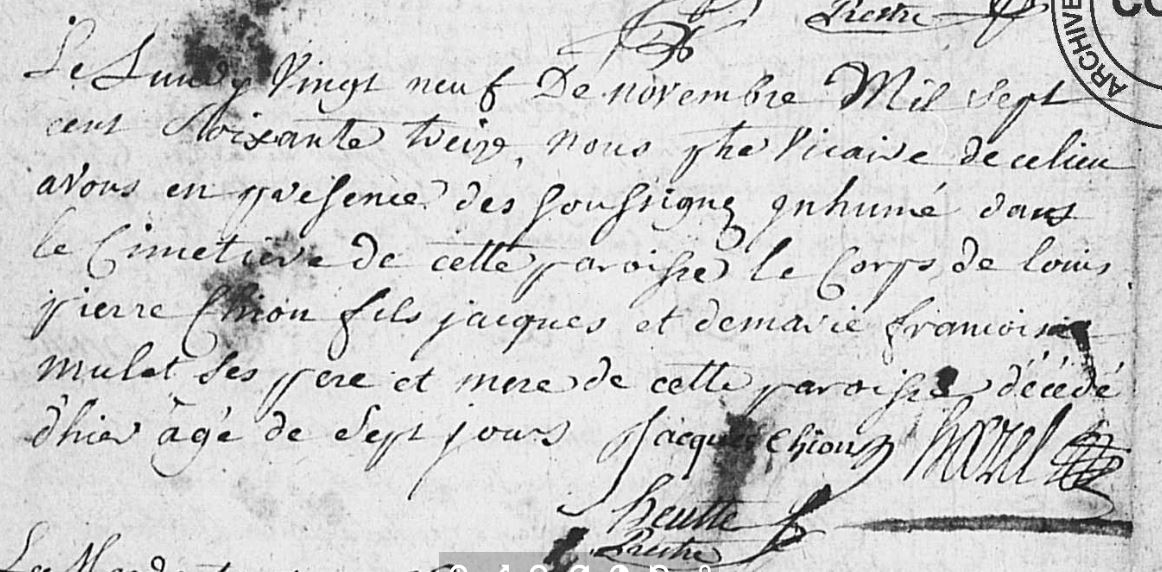 Prestre
ARCHIVE
CO
Le Lundy vingt neuf De novembre Mil sept
cent Soixante treize, nous ptre Vicaire de ce lieu
avons en presence des soussignez inhumé dans
le Cimetiere de cette paroisse le Corps de louis
pierre Chion fils jacques et demarie francoise
mulet ses pere et mere de cette paroisse décédé
d'hier âgé de Sept jours Jacques Chion morel
heutte
Prestre
Le Mardy